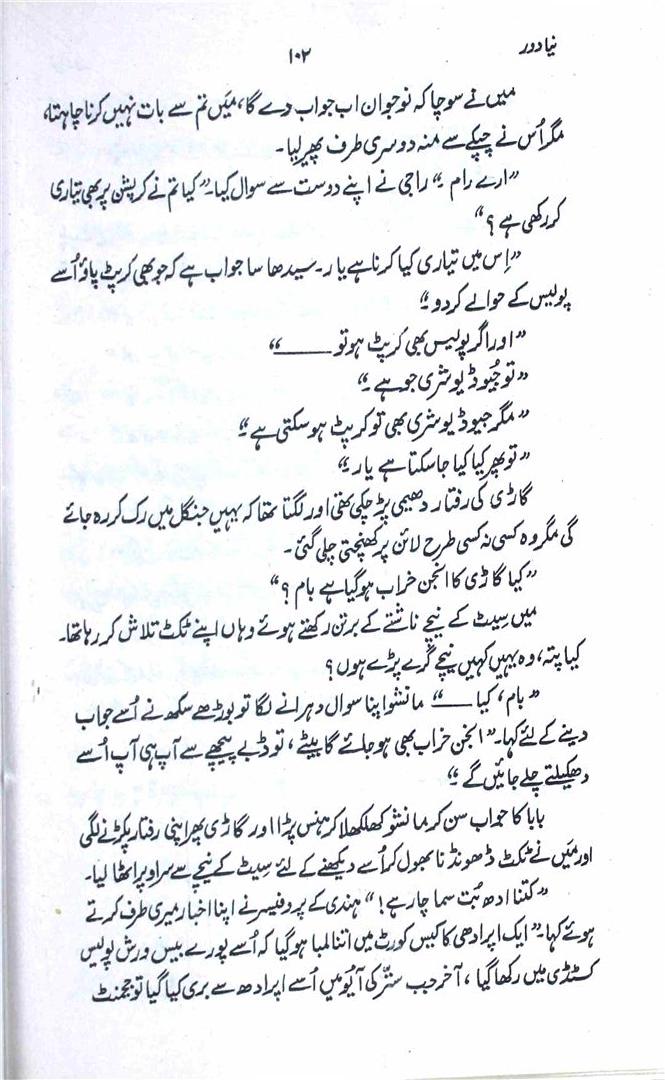 نیا دور
۱۰۲
میں نے سوچا کہ نوجوان اب جواب دے گا، میَں تم سے بات نہیں کرنا چاہتا،
مگر اُس نے چپکے سے منہ دوسری طرف پھیر لیا۔
”ارے رام۔“ راجی نے اپنے دوست سے سوال کیا۔ ”کیا تم نے کرپشن پر بھی تیاری
کر رکھی ہے؟“
”اِس میں تیاری کیا کرنا ہے یار۔ سیدھا سا جواب ہے کہ جو بھی کرپٹ پاؤ اُسے
پولیس کے حوالے کر دو۔“
”اور اگر پولیس بھی کرپٹ ہو تو ____“
”تو جُیوڈیوشری جو ہے۔“
”مگر جیوڈیوشری بھی تو کرپٹ ہو سکتی ہے۔“
”تو پھر کیا کیا جا سکتا ہے یار۔“
گاڑی کی رفتار دھیمی پڑ چکی تھی اور لگتا تھا کہ یہیں جنگل میں رک کر رہ جائے
گی مگر وہ کسی نہ کسی طرح لائن پر کھنچتی چلی گئی۔
”کیا گاڑی کا انجن خراب ہو گیا ہے بام؟“
میں سیٹ کے نیچے ناشتے کے برتن رکھتے ہوئے وہاں اپنے ٹکٹ تلاش کر رہا تھا۔
کیا پتہ، وہ یہیں کہیں نیچے گرے پڑے ہوں؟
”بام، کیا ____“ مانشو اپنا سوال دہرانے لگا تو بوڑھے سکھ نے اُسے جواب
دینے کے لئے کہا۔ ”انجن خراب بھی ہو جائے گا بیٹے، تو ڈبے پیچھے سے آپ ہی آپ اُسے
دھکیلتے چلے جائیں گے۔“
بابا کا جواب سن کر مانشو کھلکھلا کر ہنس پڑا اور گاڑی پھر اپنی رفتار پکڑنے لگی
اور میَں نے ٹکٹ ڈھونڈنا بھول کر اُسے دیکھنے کے لئے سیٹ کے نیچے سے سر اوپر اٹھا لیا۔
”کتنا ادھ بُت سما چار ہے!“ ہندی کے پروفیسر نے اپنا اخبار میری طرف کرتے
ہوئے کہا۔ ”ایک اپرادھی کا کیس کورٹ میں اتنا لمبا ہو گیا کہ اُسے پورے بیس ورش پولیس
کسٹڈی میں رکھا گیا، آخر جب ستّر کی آیُو میں اُسے اپرادھ سے بری کیا گیا تو ججمنٹ